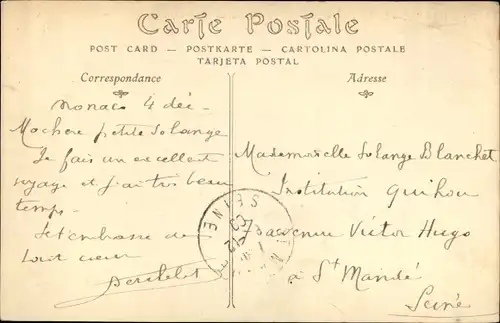 Carte Postale
POST CARD — POSTKARTE — CARTOLINA POSTALE
TARJETA POSTAL
Correspondance
Monaco 4 déc –
Ma chère petite Solange
Je fais un excellent
voyage et j'ai très beau
temps –
Je t'embrasse de
tout cœur
Adresse
Mademoiselle Solange Blanchet
Institution
avenue Victor Hugo
à St Mandé
Seine
SEINE